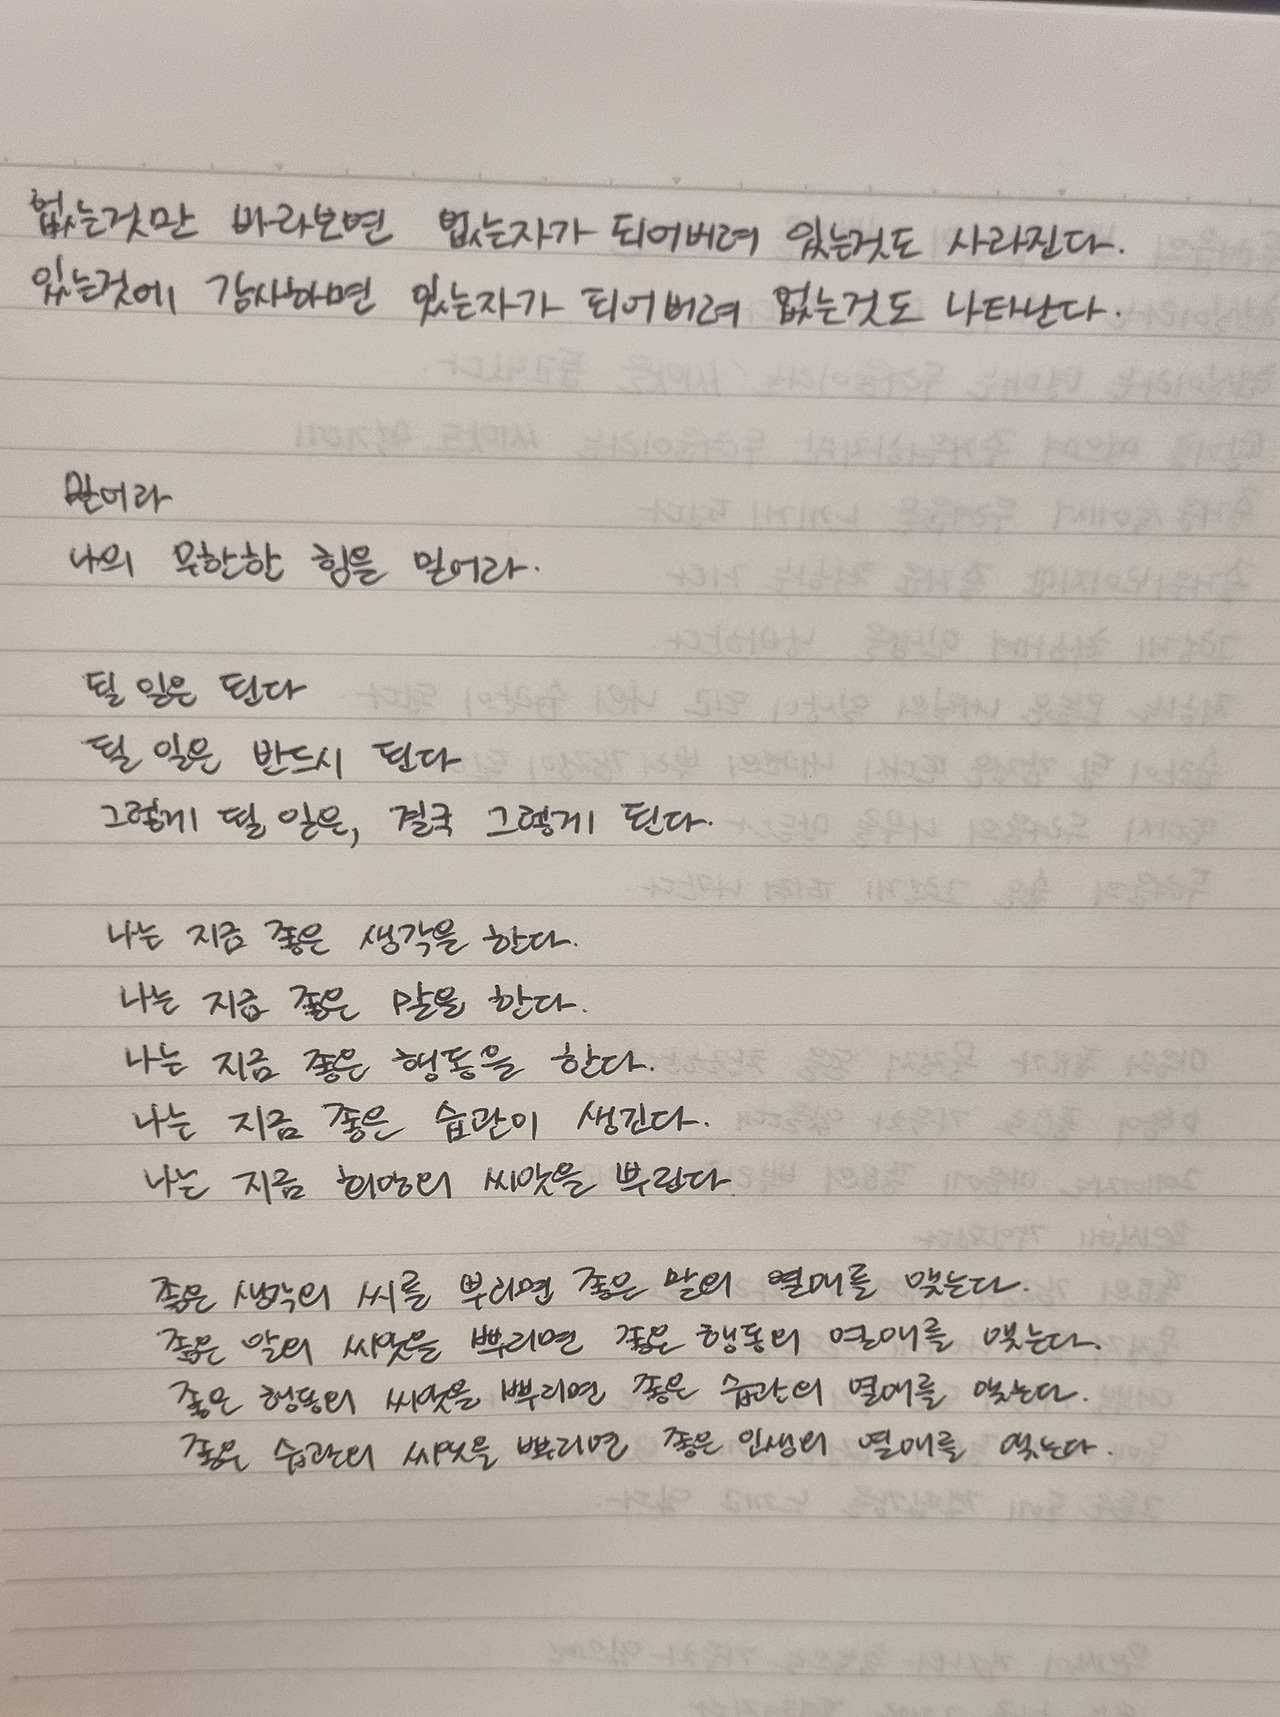 없는것만 바라보면 없는자가 되어버려 있는것도 사라진다.
있는것에 감사하면 있는자가 되어버려 없는것도 나타난다.
믿어라
나의 무한한 힘을 믿어라.
될 일은 된다
될 일은 반드시 된다
그렇게 될 일은, 결국 그렇게 된다.
나는 지금 좋은 생각을 한다.
나는 지금 좋은 말을 한다.
나는 지금 좋은 행동을 한다.
나는 지금 좋은 습관이 생긴다.
나는 지금 희망의 씨앗을 뿌린다.
좋은 생각의 씨를 뿌리면 좋은 말의 열매를 맺는다.
좋은 말의 씨앗을 뿌리면 좋은 행동의 열매를 맺는다.
좋은 행동의 씨앗을 뿌리면 좋은 습관의 열매를 맺는다.
좋은 습관의 씨앗을 뿌리면 좋은 인생의 열매를 맺는다.